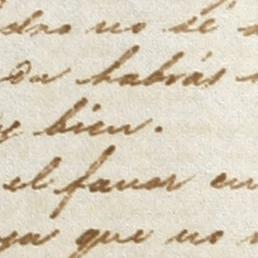 no se
habrás
bien.
el favor en
ya que no